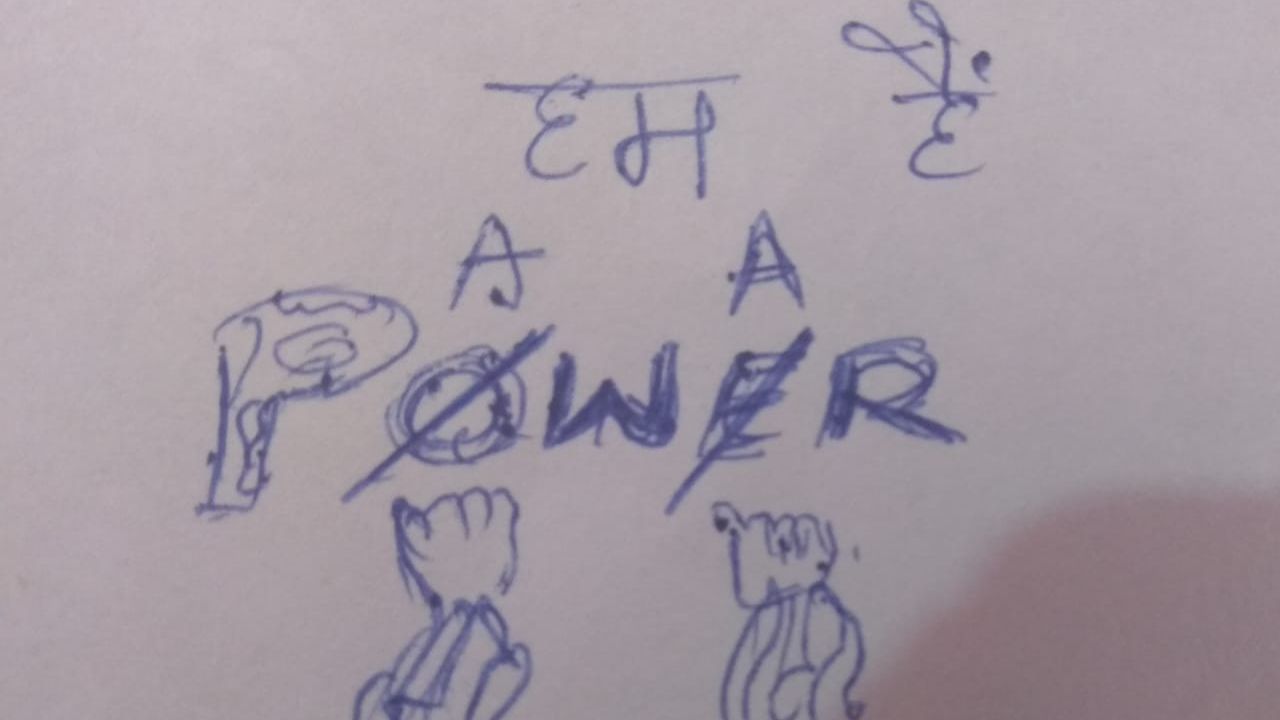 हम हैं
A A
POWER